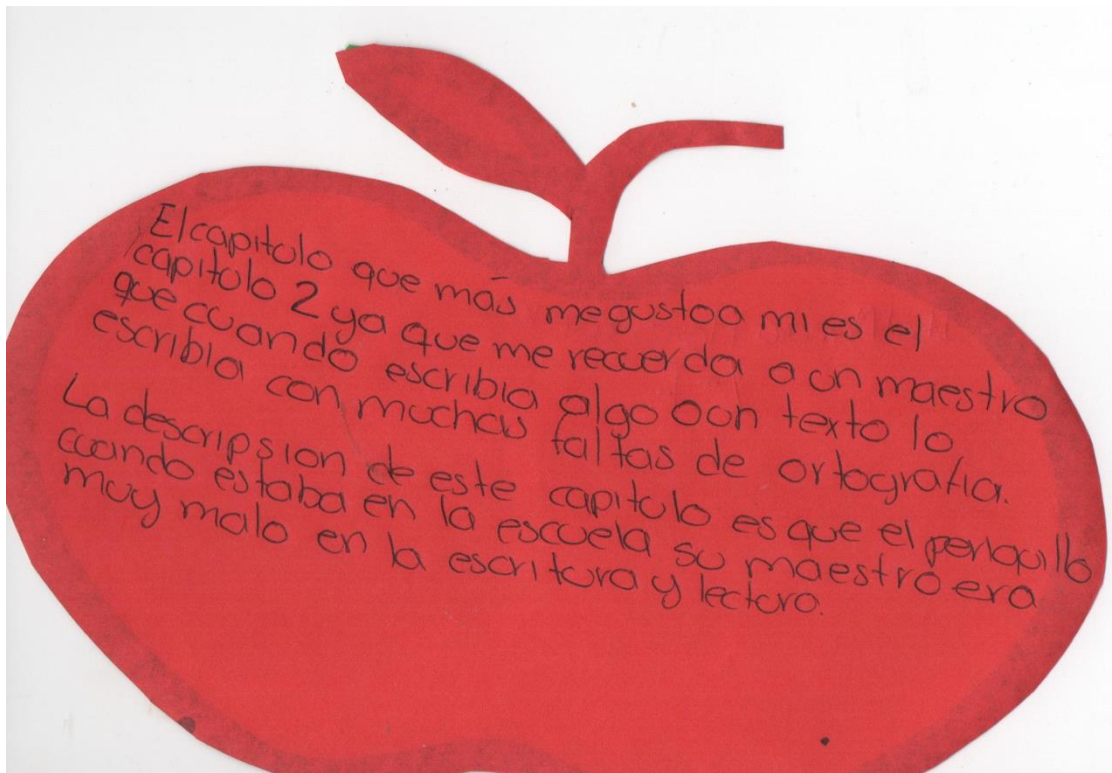 El capitulo que más me gustoo mi es el
capitulo 2 ya que me recuerda a un maestro
que cuando escribia algo o un texto lo
escribia con muchas faltas de ortografia.
La descripsion de este capitulo es que el periquillo
cuando estaba en la escuela su maestro era
muy malo en la escritura y lectura.